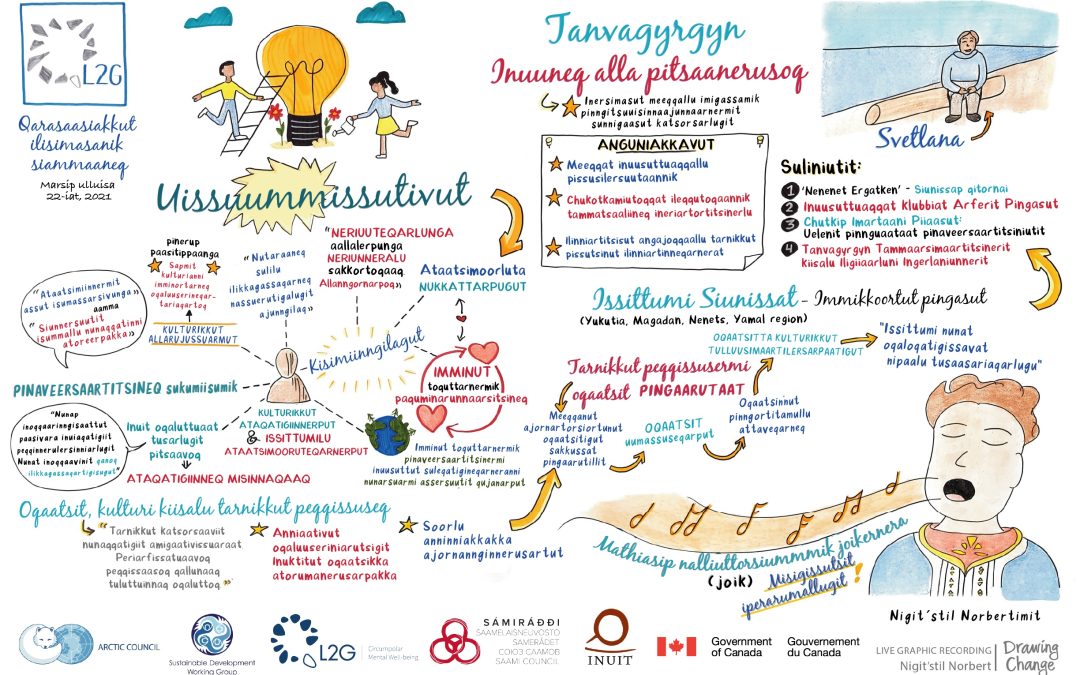 L2G
Qarasaasiakkut
ilisimasanik
siammaaneq
Marsip ulluisa
22-iat, 2021
Uissuummissutivut
pinerup
paasitippaanga
Sapmit
kulturianni
imminortarneq
oqaluuserineqar-
tariaqartoq
KULTURIKKUT
ALLARUJUSSUARMUT
"Nutaraaneq
sulilu
ilikkagassaqarneq
nassuerutigalugit
ajunngilaq»
"NERIUUTEQARLUNGA
aallalerpunga
NERIUNNERALU
sakkortoqaaq
Allanngornarpoq»
Ataatsimoorluta
NUKKATTARPUGUT
"Ataatsimiinnermit
assut isumassarsivunga»
aamma
"Siunnersuutit
isummallu nunaqqatinni
atoreerpakka»
Kisimiinngilagut
IMMINUT
toquttarnermik
paquminarunnaarsitsineq
PINAVEERSAARTITSINEQ sukumiisumik
"Nunap
inoqqaarinngisaattut
paasivara inuiaqatigiit
peqqinnerulersinniarlugit
Nunat inoqqaavinit qanoq
ilikkagassaqartigisugut"
Inuit oqaluttuaat
tusarlugit
pitsaavoq
ATAQATIGIINNEQ MISINNAQAAQ
KULTURIKKUT
ATAQATIGIINNERPUT
& ISSITTUMILU
ATAATSIMOORUTEQARNERPUT
Imminut toquttarnermik
pinaveersaartitsinermi
inuusuttut suleqatigineqarneranni
nunarsuarmi assersuutit qujanarput
Oqaatsit, kulturi kiisalu tarnikkut peqqissuseq
"Tarnikkut katsorsaaviit
nunaqqatigiit amigaativissuaraat
Periarfissatuaavoq
peqqissaasoq qallunaaq
tuluttuinnaq oqaluttoq"
Anniaativut
oqaluuseriniarutsigit
Inuktitut oqaatsikka
atorumanerusarpakka
Soorlu
anninniakkakka
ajornannginnerusartut
Tanvagyrgyn
Inuuneq alla pitsaanerusoq
Inersimasut meeqqallu imigassamik
pinngitsuuisinnaajunnaarnermit
sunnigaasut katsorsarlugit
ANGUNIAKKAVUT
Meeqqat inuusuttuaqqallu
pissusilersuutaannik
Chukotkamiutoqqat ileqqutoqaannik
tammatsaaliineq ineriartortitsinerlu
Ilinniartitsisut angajoqqaallu tarnikkut
pissutsinut ilinniartinneqarnerat
Svetlana
Suliniutit:
1 'Nenenet Ergatken' - Siunissap qitornai
2 Inuusuttuaqqat Klubbiat Arferit Pingasut
3 Chutkip Imartaani Piiaasut:
Uelenit pinnguaataat pinaveersaartitsiniutit
4 Tanvagyrgyn Tammaarsimaartitsinerit
kiisalu Iligiiaarluni Ingerlaniunnerit
Issittumi Siunissat - Immikkoortut pingasut
(Yukutia, Magadan, Nenets, Yamal region)
OQAATSITTA KULTURIKKUT
TULLUUSIMAARTILERSARPAATIGUT
"Issittumi nunat
oqaloqatigissavat
nipaalu tusaasariaqarlugu"
Tarnikkut peqqissusermi
oqaatsit PINGAARUTAAT
Meeqqanut
ajornartorsiortunut
oqaatsitigut
sakkussat
pingaarutillit
OQAATSIT
uumassuseqarput
Oqaatsinut
pinngortitamullu
attaveqarneq
Mathiasip nalliuttorsiummmik joikernera
(joik) Misigissutsit
iperarumallugit!
Nigit'stil Norbertimit
ARCTIC COUNCIL
Sustainable Development
Working Group
L2G Circumpolar
Mental Well-being
SÁMIRÁĐĐI
SAAMELAISNEUVOSTO
SAMERÅDET
СОЮЗ СААМОВ
SAAMI COUNCIL
INUIT
Government
of Canada
Gouvernement
du Canada
LIVE GRAPHIC RECORDING
Nigit'stil Norbert
Drawing
Change